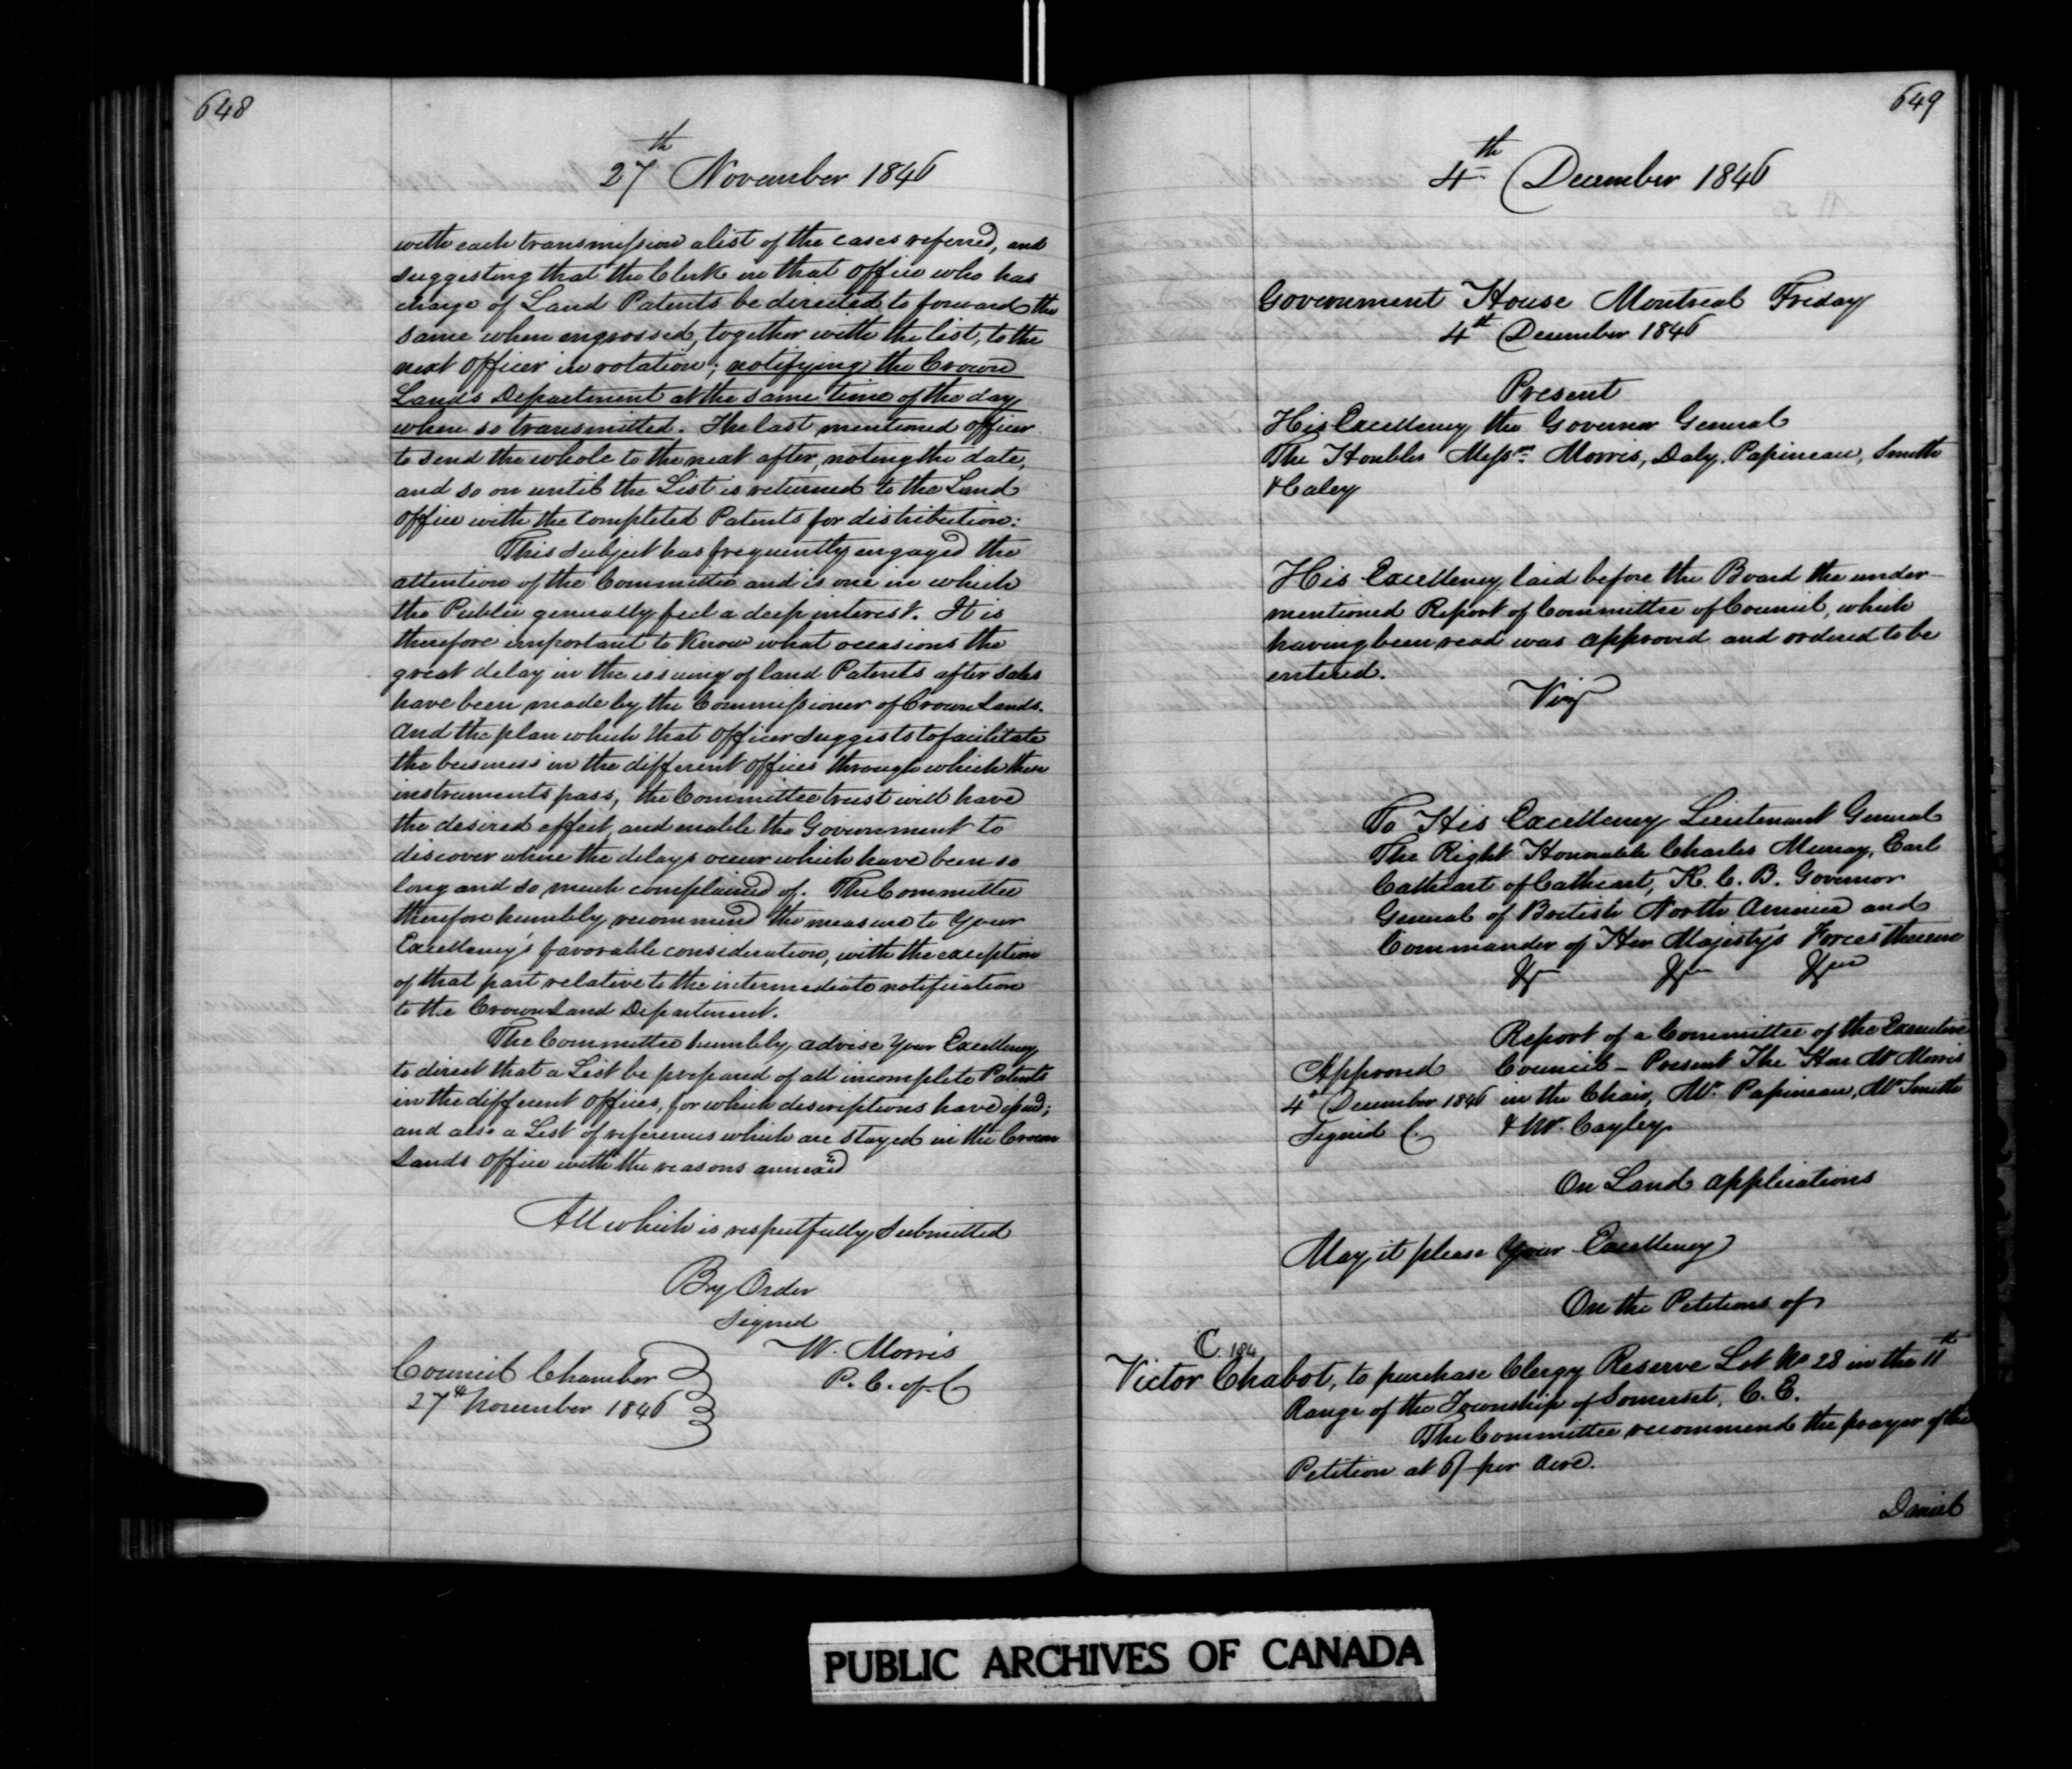 648
27th November 1846
with each transmission a list of the cases referred, and
suggesting that the Clerk in that Office who has
charge of Land Patents be directed to forward the
same when engrossed, together with the list, to the
next Officer in rotation; notifying the Crown
Lands Department at the same time of the day
when so transmitted. The last mentioned officer
to send the whole to the next after, noting the date,
and so on until the List is returned to the Land
Office with the completed Patents for distribution:
This subject has frequently engaged the
attention of the Committee and is one in which
the Public generally feel a deep interest. It is
therefore important to Know what occasions the
great delay in the issuing of land Patents after sales
have been made by the Commissioner of Crown Lands.
And the plan which that Officer suggests to facilitate
the business in the different Offices through which these
instruments pass, the Committee trust will have
the desired effect, and enable the Government to
discover where the delays occur which have been so
long and so much complained of. The Committee
therefore humbly recommend the measure to Your
Excellency's favorable consideration, with the exception
of that part relative to the intermediate notification
to the Crown Land Department.
The Committee humbly advise Your Excellency
to direct that a List be prepared of all incomplete Patents
in the different Offices, for which descriptions have issued;
and also a List of references which are stayed in the Crown
Lands Office with the reasons annexed
All which is respectfully submitted
By Order
Signed
W. Morris
P. C. of C
Council Chamber
27th November 1846
649
4th December 1846
Government House Montreal Friday
4th December 1846
Present
His Excellency the Governor General
The Honbles Messrs Morris, Daly, Papineau, Smith
& Caley
His Excellency laid before the Board the under-
mentioned Report of Committee of Council, which
having been read was approved and ordered to be
entered.
Viz
To His Excellency Lieutenant General
The Right Honorable Charles Murray, Earl
Cathcart of Cathcart, K. C. B. Governor
General of British North America and
Commander of Her Majesty's Forces therein
&c &c &c
Report of a Committee of the Executive
Council - Present The Hon Mr Morris
in the Chair, Mr. Papineau, Mr Smith
& Mr. Cayley
Approved
4th December 1846
Signed C.
On Land applications
May it please Your Excellency
On the Petitions of
C. 184
Victor Chabot, to purchase Clergy Reserve Lot No 28 in the 11th
Range of the Township of Somerset, C. E.
The Committee recommend the prayer of the
Petition at 6/ per Acre.
Daniel
PUBLIC ARCHIVES OF CANADA